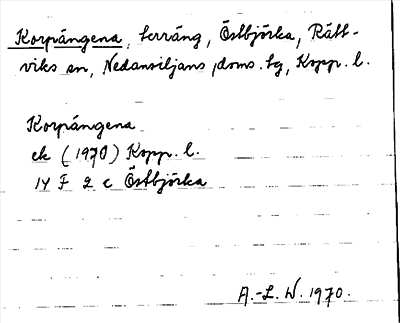 Korpängena, terräng, Östbjörka, Rätt-
viks sn, Nedansiljans doms. tg, Kopp. l.
Korpängena
ek (1970) Kopp. l.
14 F 2 c Östbjörka
A.-L. W. 1970.